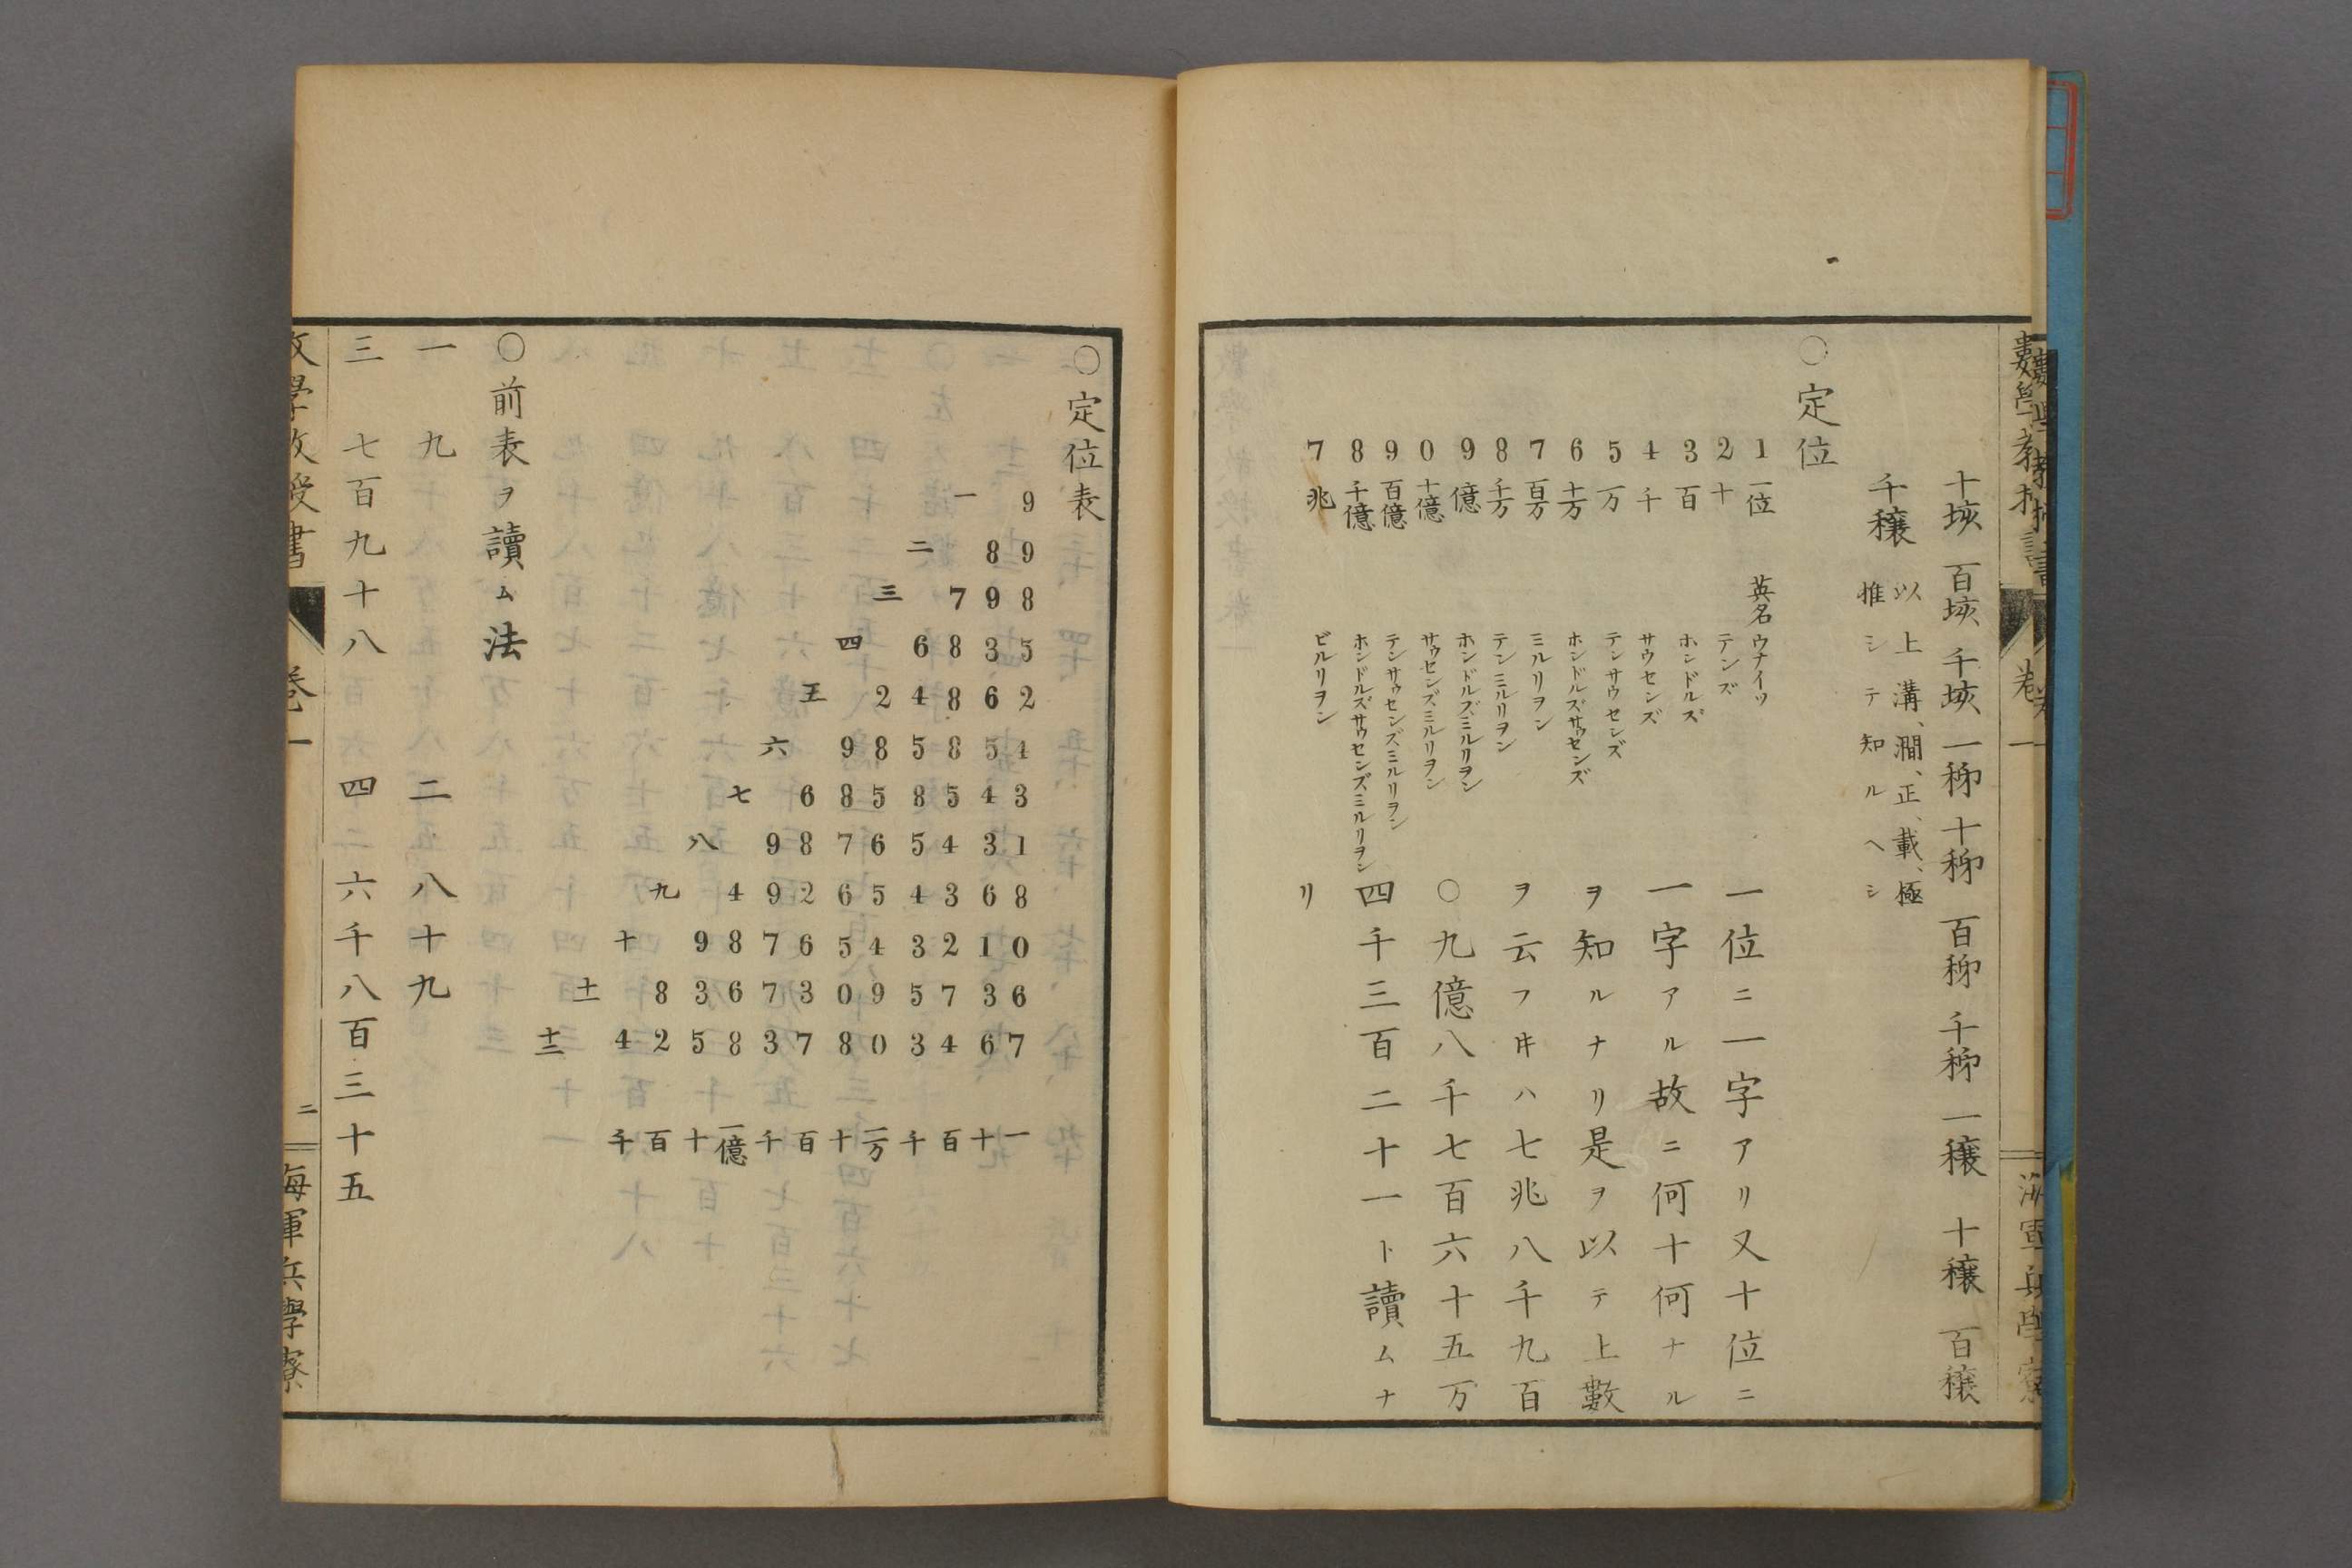 數學教授書 卷一 海軍兵學寮
十垓 百垓 千垓 一秭 十秭 百秭 千秭 一穰 十穰 百穰
千穰 以上溝、澗、正、載、極
推シテ知ルヘシ
○定位
1 一位 英名 ウナイツ
2 十 テンズ
3 百 ホンドルズ
4 千 サウセンズ
5 万 テンサウセンズ
6 十万 ホンドルズサウセンズ
7 百万 ミルリヲン
8 千万 テンミルリヲン
9 億 ホンドルズミルリヲン
0 十億 サウセンズミルリヲン
9 百億 テンサウセンズミルリヲン
8 千億 ホンドルズサウセンズミルリヲン
7 兆 ビルリヲン
一位ニ一字アリ又十位ニ
一字アル故ニ何十何ナル
ヲ知ルナリ是ヲ以テ上數
ヲ云フヰハ七兆八千九百
○九億八千七百六十五万
四千三百二十一ト讀ムナ
リ
○定位表
一 9
二 8 9
三 7 9 8
四 6 8 3 5
五 2 4 8 6 2
六 9 8 5 8 5 4
七 6 8 5 8 5 4 3
八 9 8 7 6 5 4 3 1
九 4 9 2 6 5 4 3 6 8
十 9 8 7 6 5 4 3 2 1 0
十一 8 3 6 7 3 0 9 5 7 3 6
十二 4 2 5 8 3 7 8 0 3 4 6 7
千 百 十 一億 千 百 十 一万 千 百 十 一
○前表ヲ讀ム法
一 九 二 八十九
三 七百九十八 四 六千八百三十五
數學教授書 卷一 二 海軍兵學寮